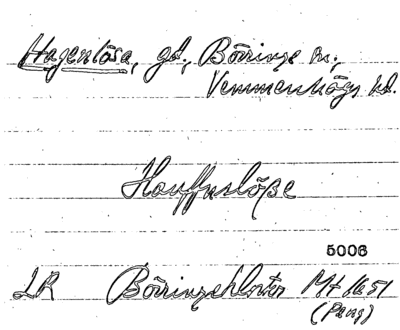 Hagenlösa, gd., Börringe sn.,
Vemmenhögs hd.
Hauffuslöße
5006
LR Börringekloster Mt 1651
(Pang)